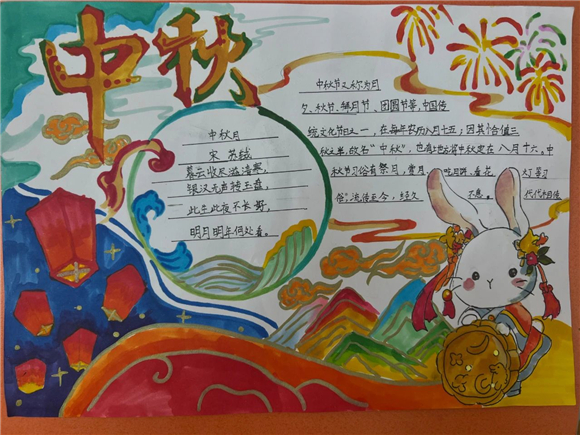 中秋
中秋月
宋 苏轼
暮云收尽溢清寒，
银汉无声转玉盘，
此生此夜不长好，
明月明年何处看。
中秋节又称为月
夕、秋节、拜月节、团圆节等，中国传
统文化节日之一，在每年农历八月十五，因其合值三
秋之半，故名“中秋”，也有地方将中秋定在八月十六。中
秋节习俗有祭月、赏月、吃月饼、看花灯等习
俗，流传至今，经久不息。代代相传